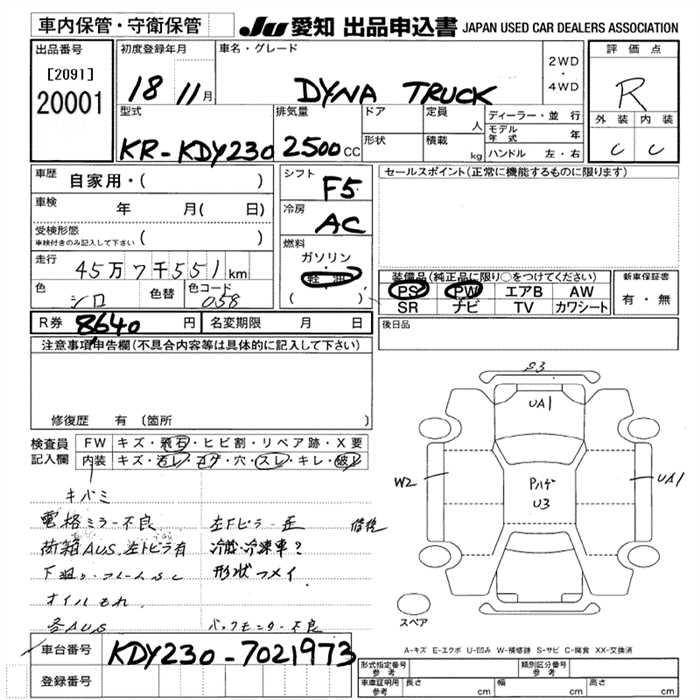 車内保管・守衛保管
JU 愛知 出品申込書 JAPAN USED CAR DEALERS ASSOCIATION
出品番号
[2091]
20001
初度登録年月
18 11月
車名・グレード
DYNA TRUCK
2WD
・
4WD
評価点
R
外装 内装
C C
型式
KR-KDY230
排気量
2500 CC
ドア
形状
定員
人
積載
kg
ディーラー・並行
モデル年式 年
ハンドル 左・右
車歴 自家用・( )
車検 年 月( 日)
受検形態
車検付きのみ記入して下さい ( )
走行 45万7千551km
色 シロ
色替
色コード 058
シフト
F5
冷房
AC
燃料
ガソリン
軽油
( )
セールスポイント(正常に機能するものに限ります)
装備品(純正品に限り○をつけてください)
PS PW エアB AW
SR ナビ TV カワシート
新車保証書
有・無
R券 8640 円
名変期限 月 日
後日品
注意事項申告欄(不具合内容等は具体的に記入して下さい)
修復歴 有〔箇所
検査員記入欄
FW キズ・飛石・ヒビ割・リペア跡・X要
内装 キズ・汚レ・コゲ・穴・スレ・キレ・破レ
キバミ
電格ミラー不良 左Fピラー歪 修復
荷箱AUS、左トビラ有 冷蔵・冷凍車?
下廻り・フレームSC 形状ツメイ
オイルもれ
各AUS バックモニター不良
23
UA1
W2
Pハゲ
U3
UA1
スペア
A-キズ E-エクボ U-凹み W-補修跡 S-サビ C-腐食 XX-交換済
車台番号 KDY230-7021973
登録番号
形式指定番号
参考
類別区分番号
参考
車庫証明用
参考
長さ cm 幅 cm 高さ cm